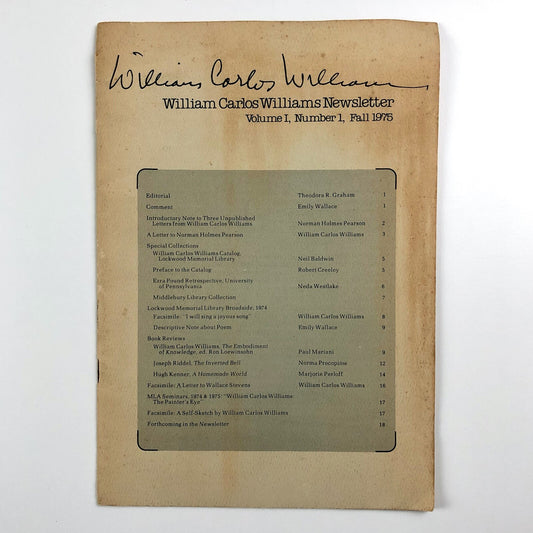 William Carlos Williams
William Carlos Williams Newsletter
Volume I, Number 1, Fall 1975
Editorial Theodora R. Graham 1
Comment Emily Wallace 1
Introductory Note to Three Unpublished
Letters from William Carlos Williams Norman Holmes Pearson 2
A Letter to Norman Holmes Pearson William Carlos Williams 3
Special Collections
William Carlos Williams Catalog,
Lockwood Memorial Library Neil Baldwin 5
Preface to the Catalog Robert Creeley 5
Ezra Pound Retrospective, University
of Pennsylvania Neda Westlake 6
Middlebury Library Collection 7
Lockwood Memorial Library Broadside, 1974
Facsimile: "I will sing a joyous song" William Carlos Williams 8
Descriptive Note about Poem Emily Wallace 9
Book Reviews
William Carlos Williams, The Embodiment
of Knowledge, ed. Ron Loewinsohn Paul Mariani 9
Joseph Riddel, The Inverted Bell Norma Procopiow 12
Hugh Kenner, A Homemade World Marjorie Perloff 14
Facsimile: A Letter to Wallace Stevens William Carlos Williams 16
MLA Seminars, 1974 & 1975: "William Carlos Williams:
The Painter's Eye" 17
Facsimile: A Self-Sketch by William Carlos Williams 17
Forthcoming in the Newsletter 18